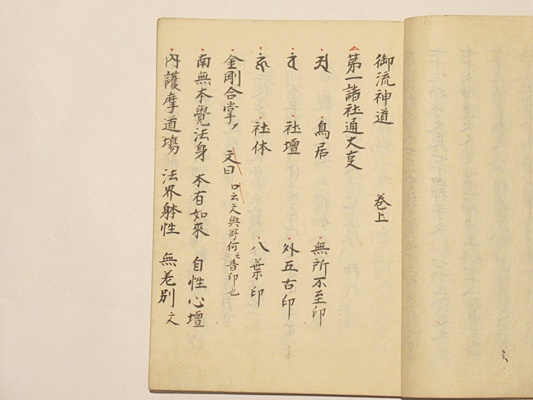 御流神道 巻上
第一諸社通大事
鳥居 無所不至印
社壇 外五古印
社体 八葉印
金剛合掌 文曰
南無本覺法身 本有如來 自性心壇
内護摩道場 法界躰性 無差別 文